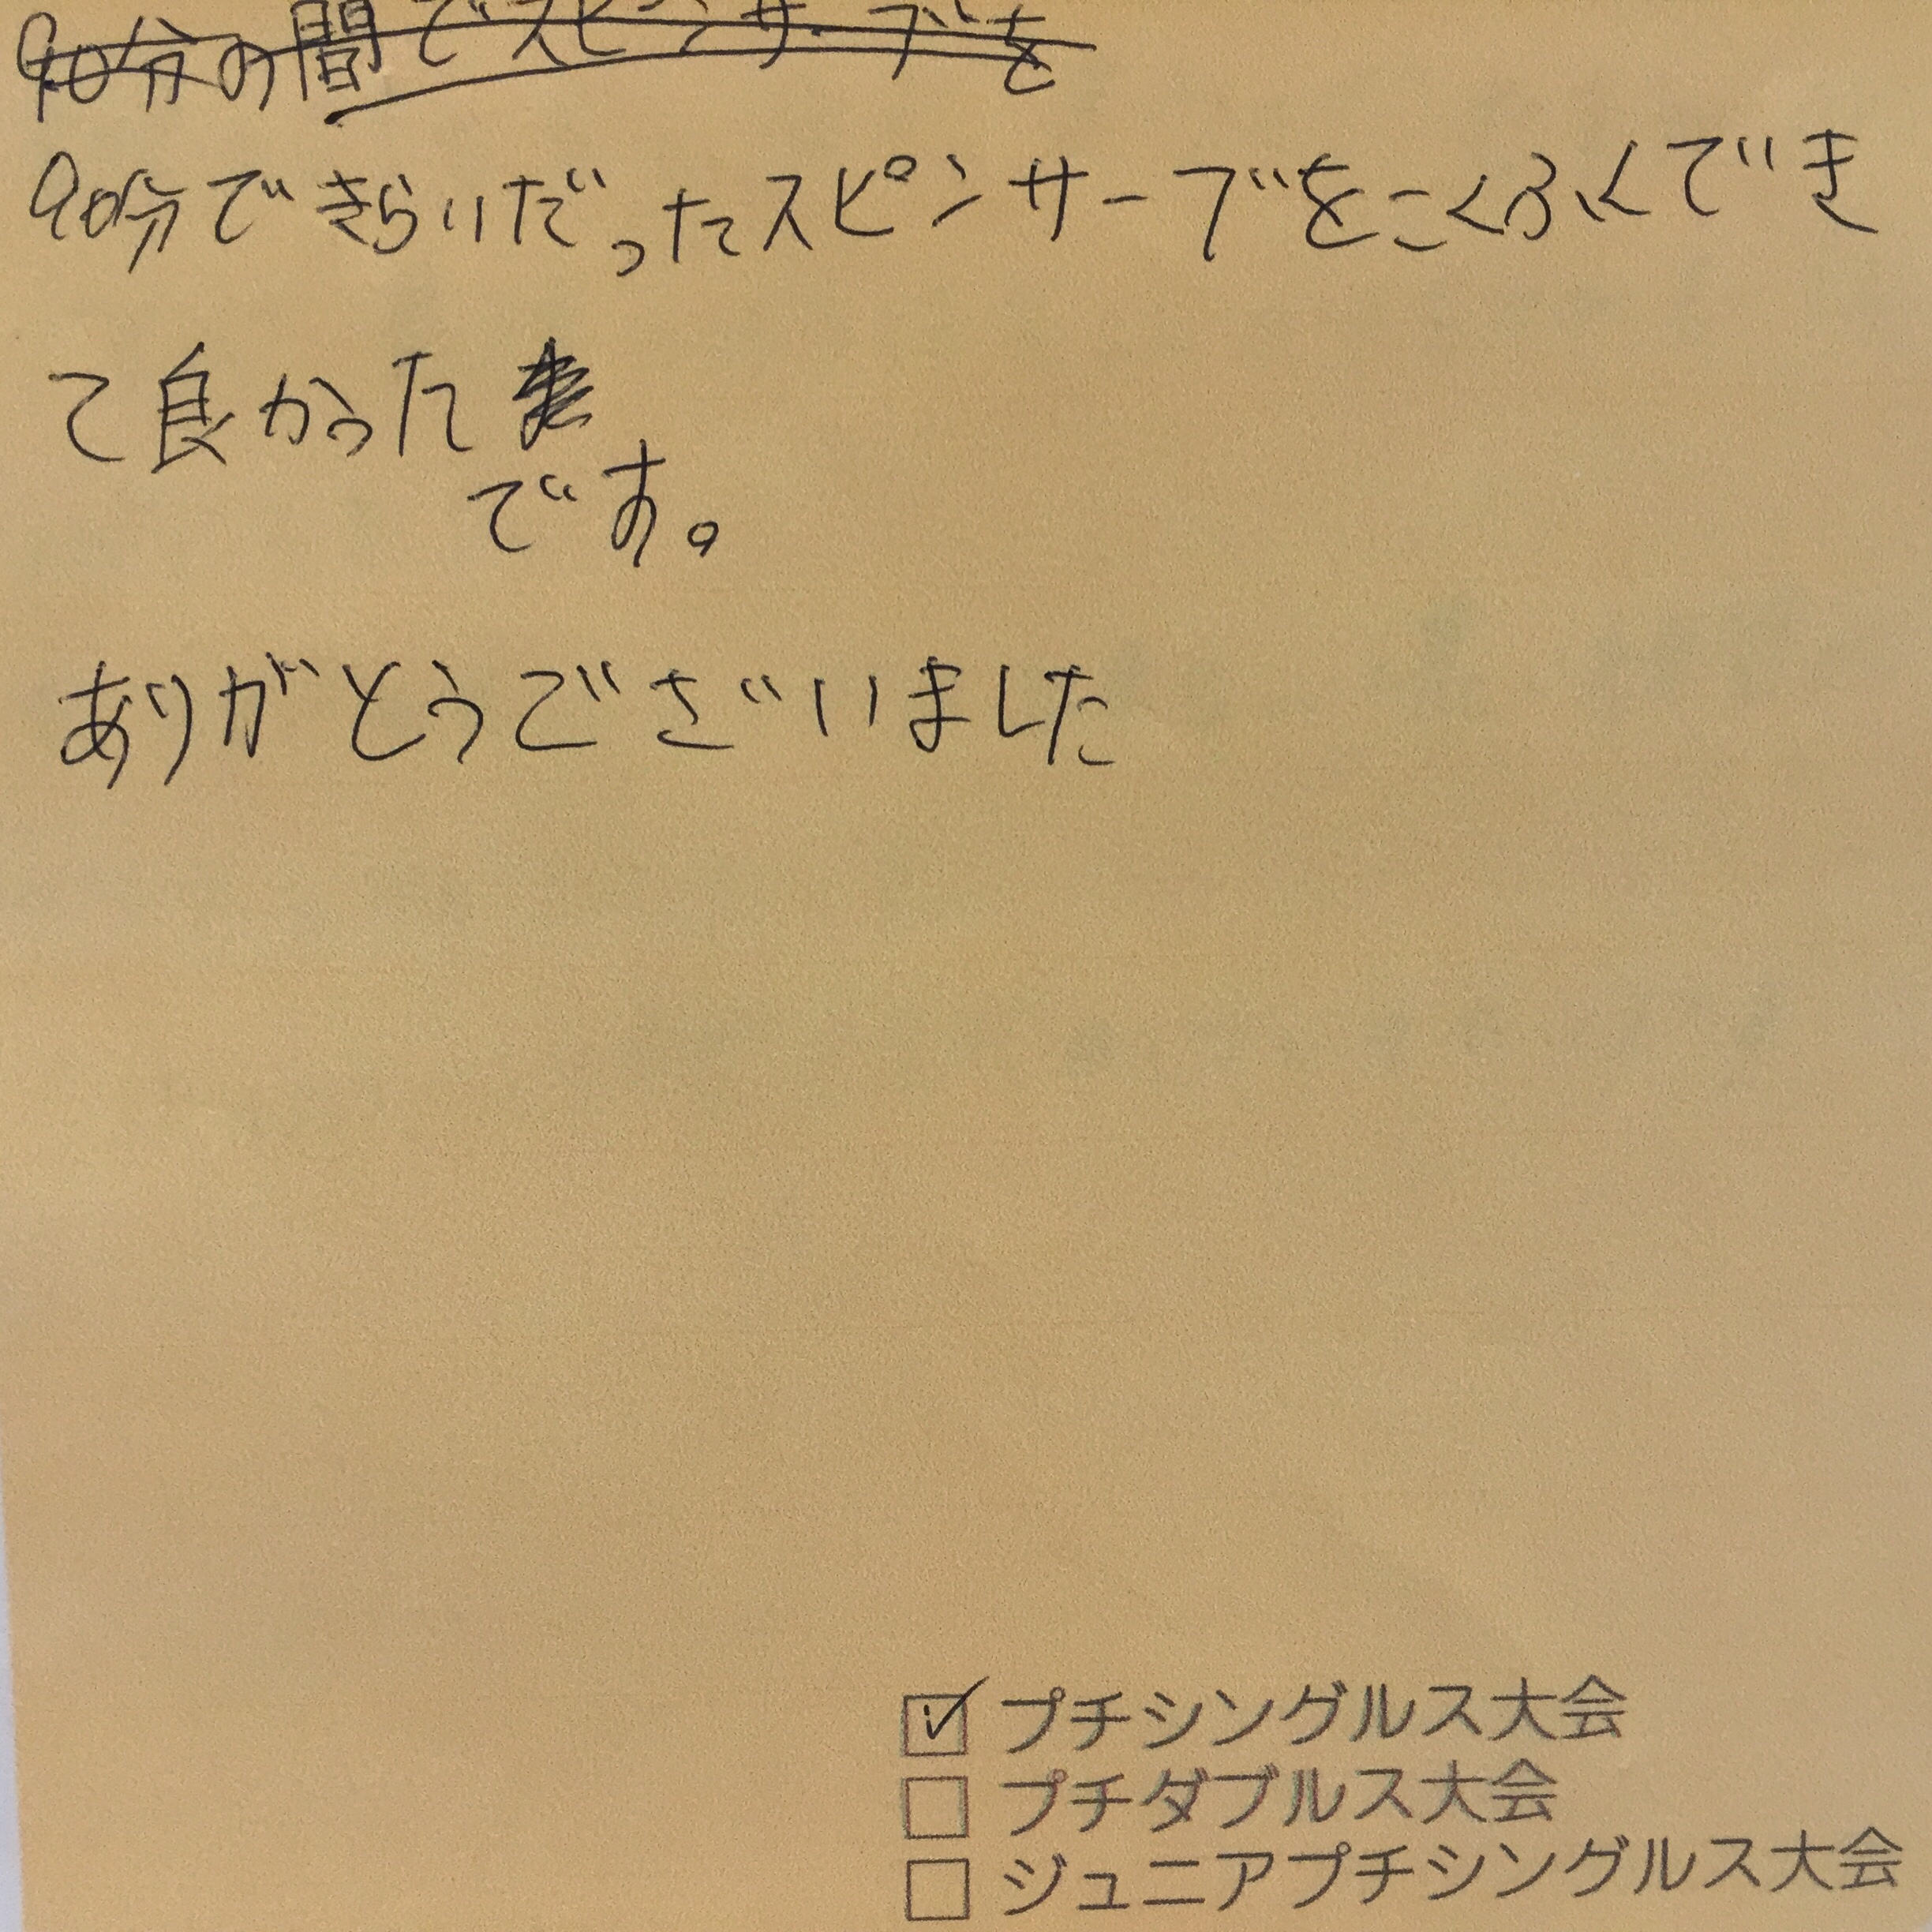 90分の間でスピンサーブを
90分できらいだったスピンサーブをこくふくでき
て良かった
です。
ありがとうございました
プチシングルス大会
プチダブルス大会
ジュニアプチシングルス大会